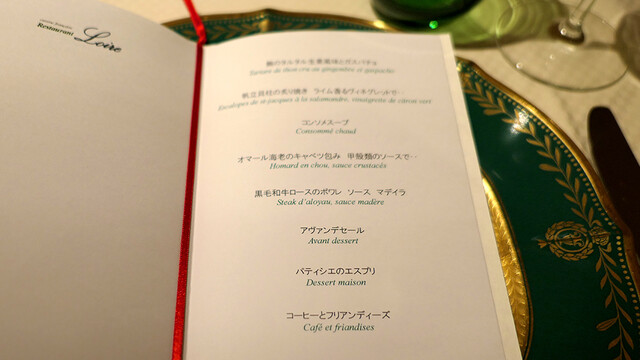 cuisine française
Restaurant Loire
鮪のタルタル生姜風味とガスパチョ
Tartare de thon cru au gingembre et gaspacho
帆立貝柱の炙り焼き ライム香るヴィネグレットで‥
Escalopes de st-jacques à la salamandre, vinaigrette de citron vert
コンソメスープ
Consommé chaud
オマール海老のキャベツ包み 甲殻類のソースで‥
Homard en chou, sauce crustacés
黒毛和牛ロースのポワレ ソース マデイラ
Steak d'aloyau, sauce madère
アヴァンデセール
Avant dessert
パティシエのエスプリ
Dessert maison
コーヒーとフリアンディーズ
Café et friandises